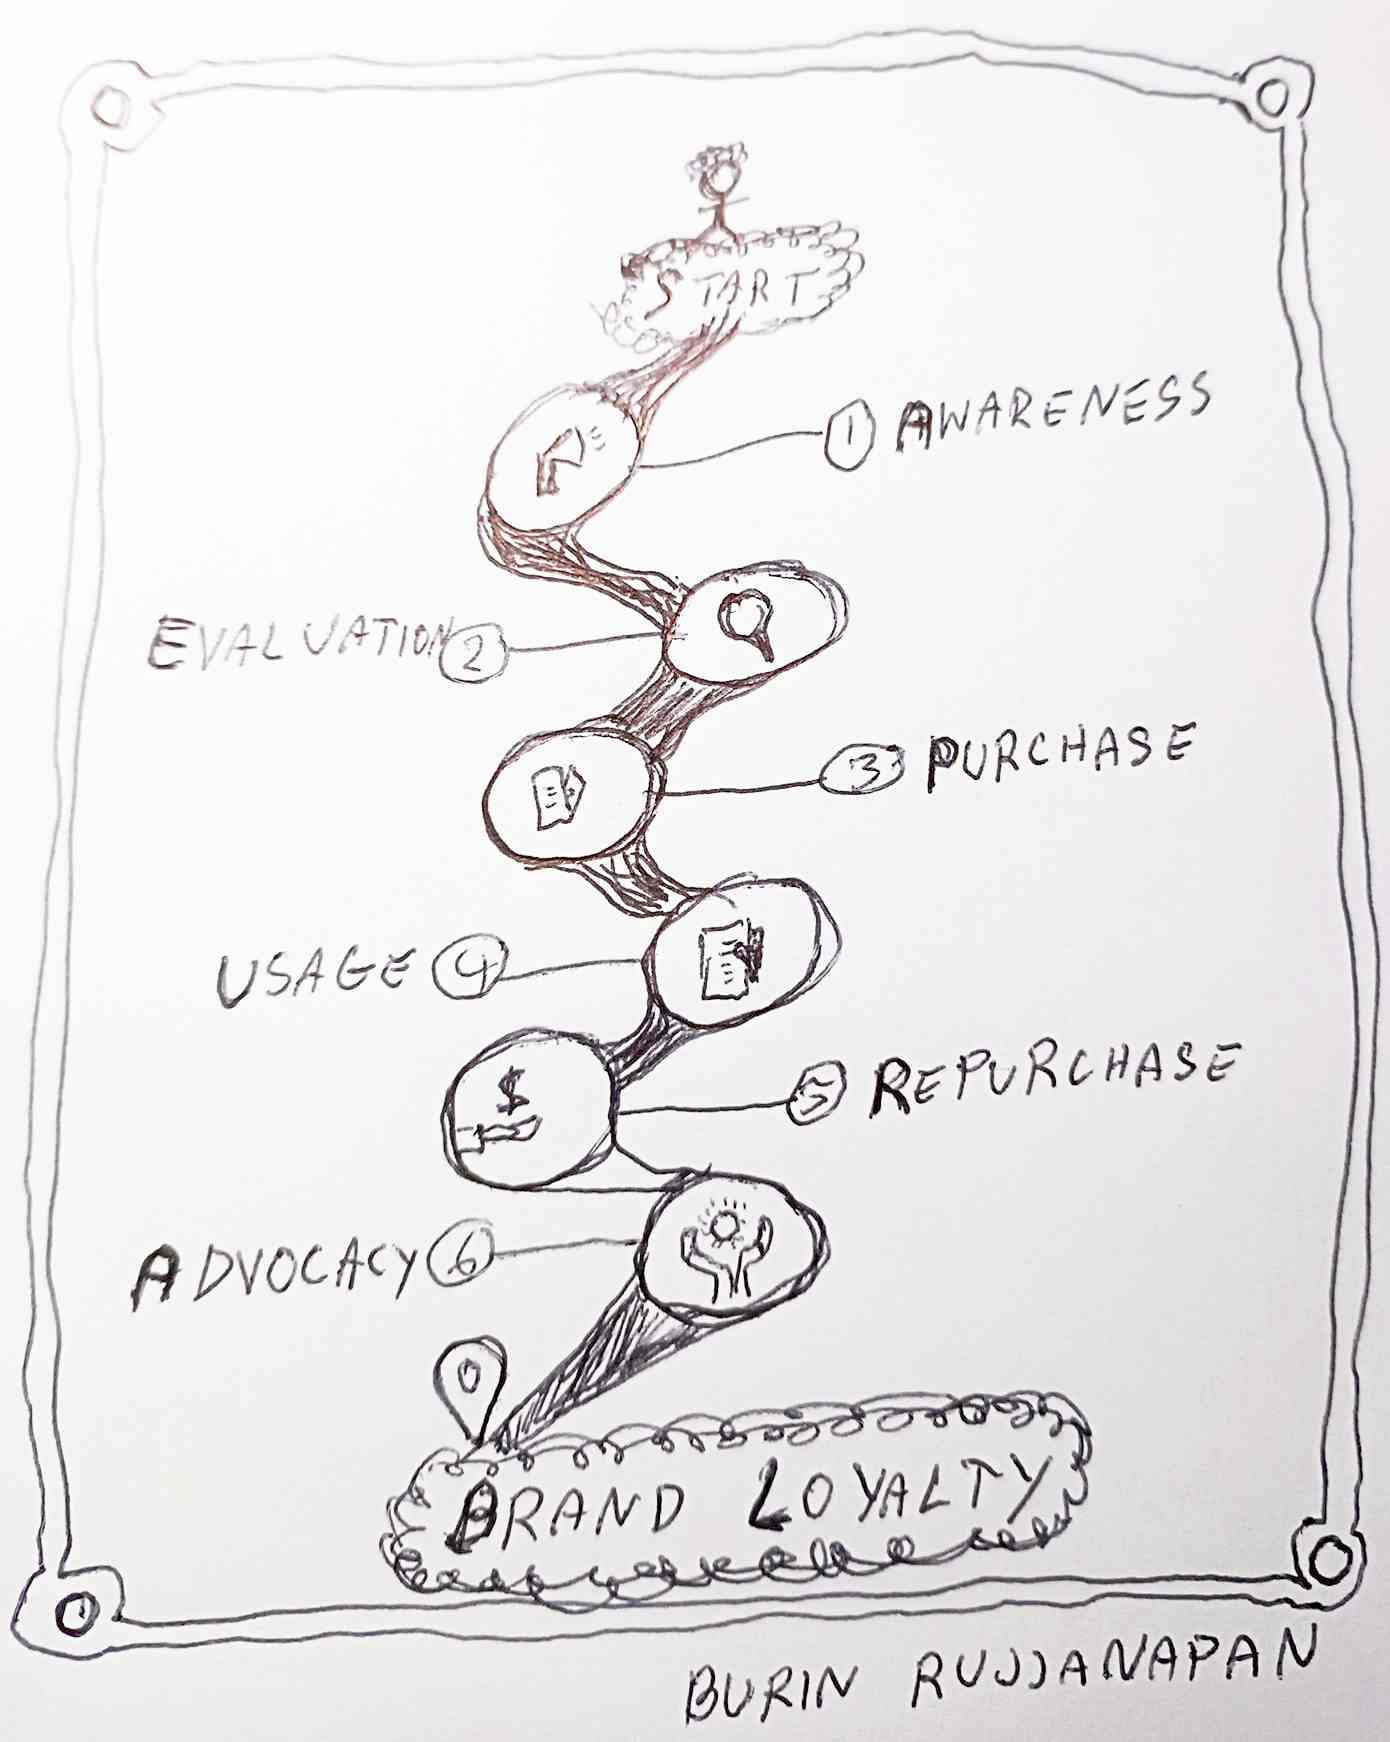 START
1 AWARENESS
EVALUATION 2
3 PURCHASE
USAGE 4
$
5 REPURCHASE
ADVOCACY 6
BRAND LOYALTY
BURIN RUJJANAPAN